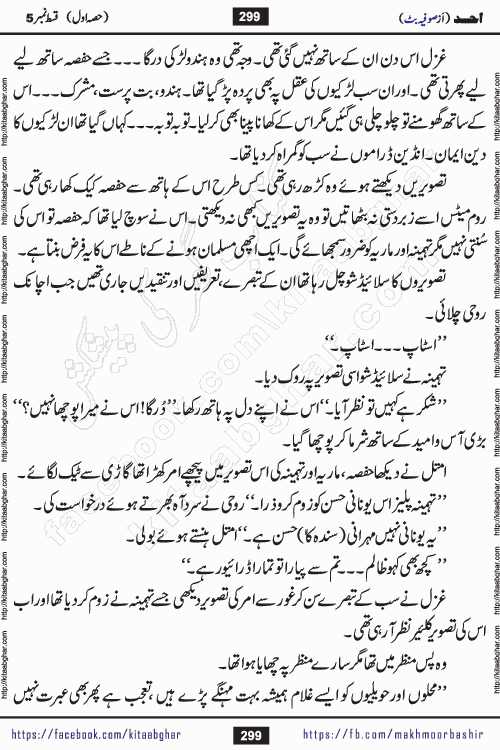 احمد (از صوفیہ بٹ) 299 (حصہ اول) قسط نمبر 5
غزل اس دن ان کے ساتھ نہیں گئی تھی۔ وجہ تھی وہ ہندو لڑکی درگا۔۔۔ جسے حفصہ ساتھ لیے
لیے پھرتی تھی۔ اور ان سب لڑکیوں کی عقل پہ بھی پردہ پڑ گیا تھا۔ ہندو، بت پرست، مشرک۔۔۔ اس
کے ساتھ گھومنے تو چلو چلی ہی گئیں مگر اس کے کھانا پینا بھی کر لیا۔ توبہ توبہ۔۔۔ کہاں گیا تھا ان لڑکیوں کا
دین ایمان۔ انڈین ڈراموں نے سب کو گمراہ کر دیا تھا۔
تصویریں دیکھتے ہوئے وہ کڑھ رہی تھی۔ کس طرح اس کے ہاتھ سے حفصہ کیک کھا رہی تھی۔
روم میٹس اسے زبردستی نہ بٹھاتیں تو وہ یہ تصویریں کبھی نہ دیکھتی۔ اس نے سوچ لیا تھا کہ حفصہ تو اس کی
سُنتی نہیں مگر تہمینہ اور ماریہ کو ضرور سمجھائے گی۔ ایک اچھی مسلمان ہونے کے ناطے اس کا یہ فرض بنتا ہے۔
تصویروں کا سلائیڈ شو چل رہا تھا ان کے تبصرے، تعریفیں اور تنقیدیں جاری تھیں جب اچانک
روحی چلائی۔
”اسٹاپ۔۔۔ اسٹاپ۔“
تہمینہ نے سلائیڈ شو اسی تصویر پہ روک دیا۔
”شکر ہے کہیں تو نظر آیا۔“ اس نے اپنے دل پہ ہاتھ رکھا۔ ”دُرگا! اس نے میرا پوچھا نہیں؟“
بڑی آس و امید کے ساتھ شرما کر پوچھا گیا۔
امتل نے دیکھا حفصہ، ماریہ اور تہمینہ کی اس تصویر میں پیچھے امر کھڑا تھا گاڑی سے ٹیک لگائے۔
”تہمینہ پلیز اس یونانی حسن کو زوم کرو ذرا۔“ روحی نے سرد آہ بھرتے ہوئے درخواست کی۔
”یہ یونانی نہیں مہرانی (سندھ کا) حسن ہے۔“ امتل ہنستے ہوئے بولی۔
”کچھ بھی کہو ظالم۔۔۔ تم سے پیارا تو تمارا ڈرائیور ہے۔“
غزل نے سب کے تبصرے سن کر غور سے امر کی تصویر دیکھی جسے تہمینہ نے زوم کر دیا تھا اور اب
اس کی تصویر کلیئر نظر آ رہی تھی۔
وہ پس منظر میں تھا مگر سارے منظر پہ چھایا ہوا تھا۔
”محلوں اور حویلیوں کو ایسے غلام ہمیشہ بہت مہنگے پڑے ہیں، تعجب ہے پھر بھی عبرت نہیں
https://facebook.com/kitaabghar 299 https://fb.com/makhmoorbashir
http://kitaabghar.com